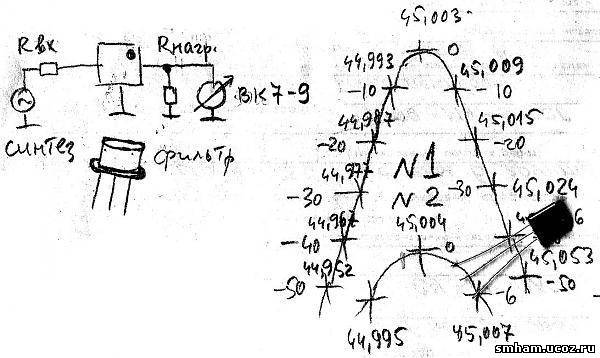 Rвх
Rнагр.
ВК7-9
синтез
фильтр
45,003
0
44,993
45,009
-10
-10
44,987
45,015
-20
-20
N1
44,977
45,024
-30
-30
N2
44,967
45,004
-40
0
6
44,952
45,053
-50
-50
-6
44,995
45,007
smham.ucoz.ru